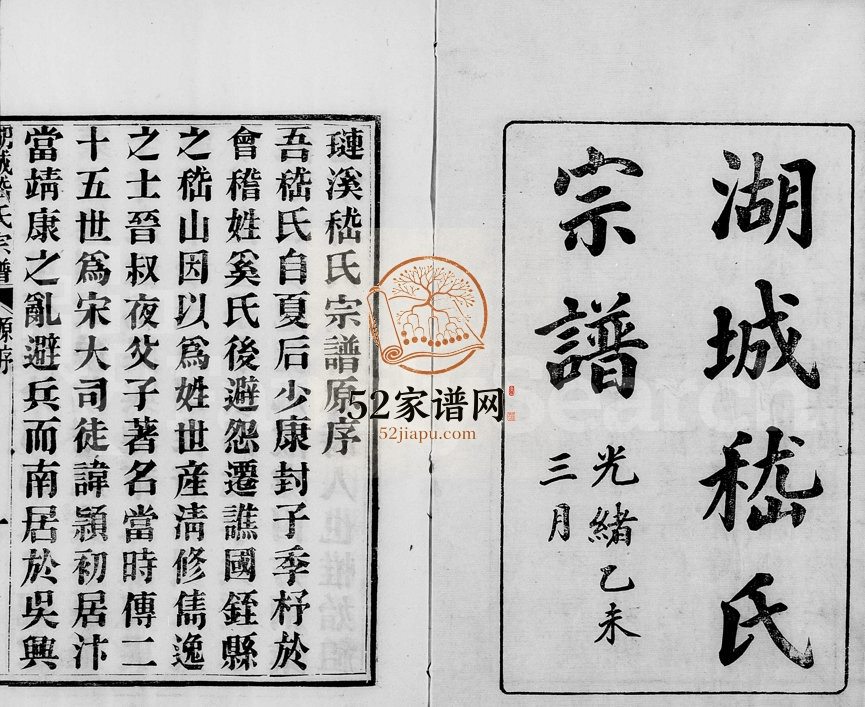 湖城嵇氏
宗譜
光緒乙未
三月
璉溪嵇氏宗譜原序
吾嵇氏自夏后少康封子季杼於
會稽姓奚氏後避怨遷譙國銍縣
之嵇山因以爲姓世産淸修儁逸
之士晉叔夜父子著名當時傳二
十五世爲宋大司徒諱顈初居汴
當靖康之亂避兵而南居於吳興
城嵇氏宗譜 原序 一
52家谱网
52jiapu.com